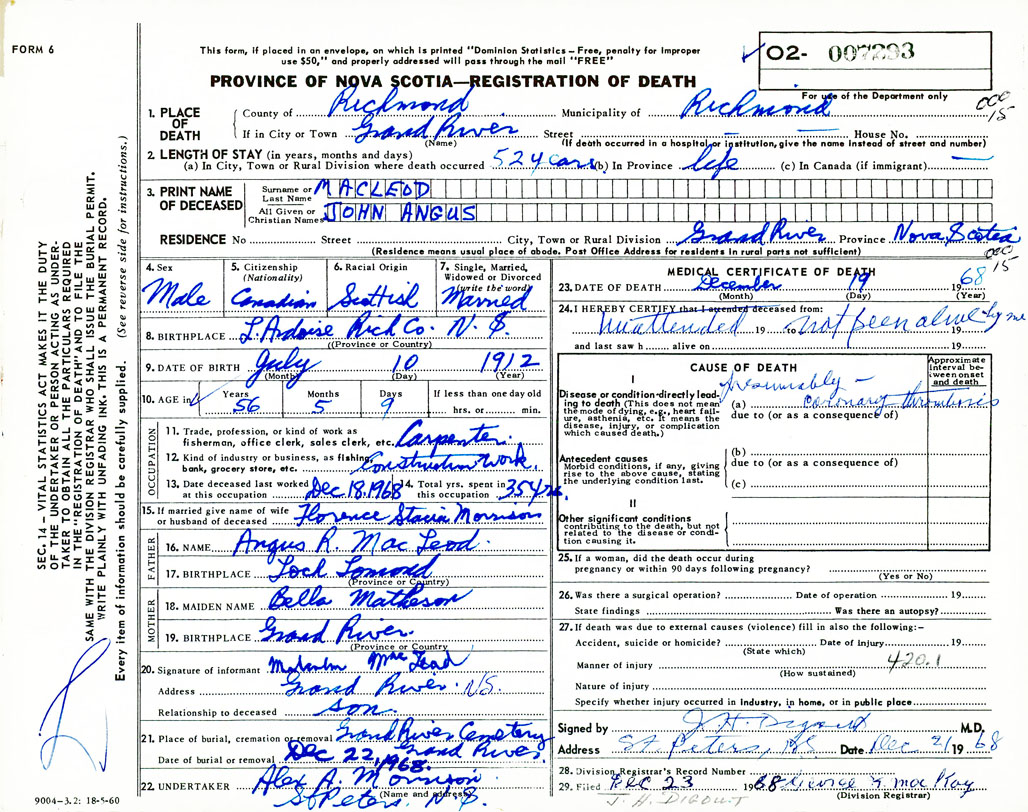 FORM 6
This form, if placed in an envelope, on which is printed "Dominion Statistics – Free, penalty for improper
use $50," and properly addressed will pass through the mail "FREE"
02- 007293
For use of the Department only
PROVINCE OF NOVA SCOTIA—REGISTRATION OF DEATH
000
15
1. PLACE OF DEATH
County of Richmond Municipality of Richmond
If in City or Town Grand River Street — House No. —
(Name) (If death occurred in a hospital or institution, give the name instead of street and number)
2. LENGTH OF STAY (in years, months and days)
(a) In City, Town or Rural Division where death occurred 52 years (b) In Province life (c) In Canada (if immigrant) —
3. PRINT NAME OF DECEASED
Surname or Last Name MACLEOD
All Given or Christian Names JOHN ANGUS
RESIDENCE No Street City, Town or Rural Division Grand River Province Nova Scotia
(Residence means usual place of abode. Post Office Address for residents in rural parts not sufficient)
000
15
4. Sex Male
5. Citizenship (Nationality) Canadian
6. Racial Origin Scottish
7. Single, Married, Widowed or Divorced (write the word) Married
8. BIRTHPLACE L'Ardoise Rich Co. N. S.
(Province or Country)
9. DATE OF BIRTH July 10 1912
(Month) (Day) (Year)
10. AGE in Years 56 Months 5 Days 9 If less than one day old
hrs. or min.
OCCUPATION
11. Trade, profession, or kind of work as
fisherman, office clerk, sales clerk, etc. Carpenter.
12. Kind of industry or business, as fishing,
bank, grocery store, etc. Construction Work.
13. Date deceased last worked at this occupation Dec 18. 1968
14. Total yrs. spent in this occupation 35 yrs.
15. If married give name of wife
or husband of deceased Florence Stacia Morrison
FATHER
16. NAME Angus R. Mac Leod.
17. BIRTHPLACE Loch Lomond
(Province or Country)
MOTHER
18. MAIDEN NAME Bella Matheson
19. BIRTHPLACE Grand River.
(Province or Country
20. Signature of informant Malcolm Mac Leod
Address Grand River. N.S.
Relationship to deceased son.
21. Place of burial, cremation or removal Grand River Cemetery
Grand River.
Date of burial or removal Dec 22, 1968.
22. UNDERTAKER Alex A. Morrison
(Name and address)
St Peters, N. S.
MEDICAL CERTIFICATE OF DEATH
23. DATE OF DEATH December 19 1968
(Month) (Day) (Year)
24. I HEREBY CERTIFY that I attended deceased from:
Unattended 19 to not seen alive by me
and last saw h alive on 19
CAUSE OF DEATH
Approximate interval between onset and death
I
Disease or condition directly leading to death (This does not mean the mode of dying, e.g., heart failure, asthenia, etc. It means the disease, injury, or complication which caused death.)
presumably –
(a) coronary thrombosis
due to (or as a consequence of)
Antecedent causes
Morbid conditions, if any, giving rise to the above cause, stating the underlying condition last.
(b)
due to (or as a consequence of)
(c)
II
Other significant conditions
contributing to the death, but not related to the disease or condition causing it.
25. If a woman, did the death occur during
pregnancy or within 90 days following pregnancy?
(Yes or No)
26. Was there a surgical operation? Date of operation 19
State findings Was there an autopsy?
27. If death was due to external causes (violence) fill in also the following:-
Accident, suicide or homicide? Date of injury 19
(State which)
Manner of injury 420.1
(How sustained)
Nature of injury
Specify whether injury occurred in industry, in home, or in public place
Signed by J. H. Digout M.D.
Address St. Peters, NS Date Dec 21 1968
28. Division Registrar's Record Number
29. Filed DEC 23 1968 George K. MacKay
(Division Registrar)
J. H. DIGOUT
SEC. 14 – VITAL STATISTICS ACT MAKES IT THE DUTY
OF THE UNDERTAKER OR PERSON ACTING AS UNDER-
TAKER TO OBTAIN ALL THE PARTICULARS REQUIRED
IN THE "REGISTRATION OF DEATH" AND TO FILE THE
SAME WITH THE DIVISION REGISTRAR WHO SHALL ISSUE THE BURIAL PERMIT.
WRITE PLAINLY WITH UNFADING INK. THIS IS A PERMANENT RECORD.
Every item of information should be carefully supplied. (See reverse side for instructions.)
9004–3.2: 18-5-60